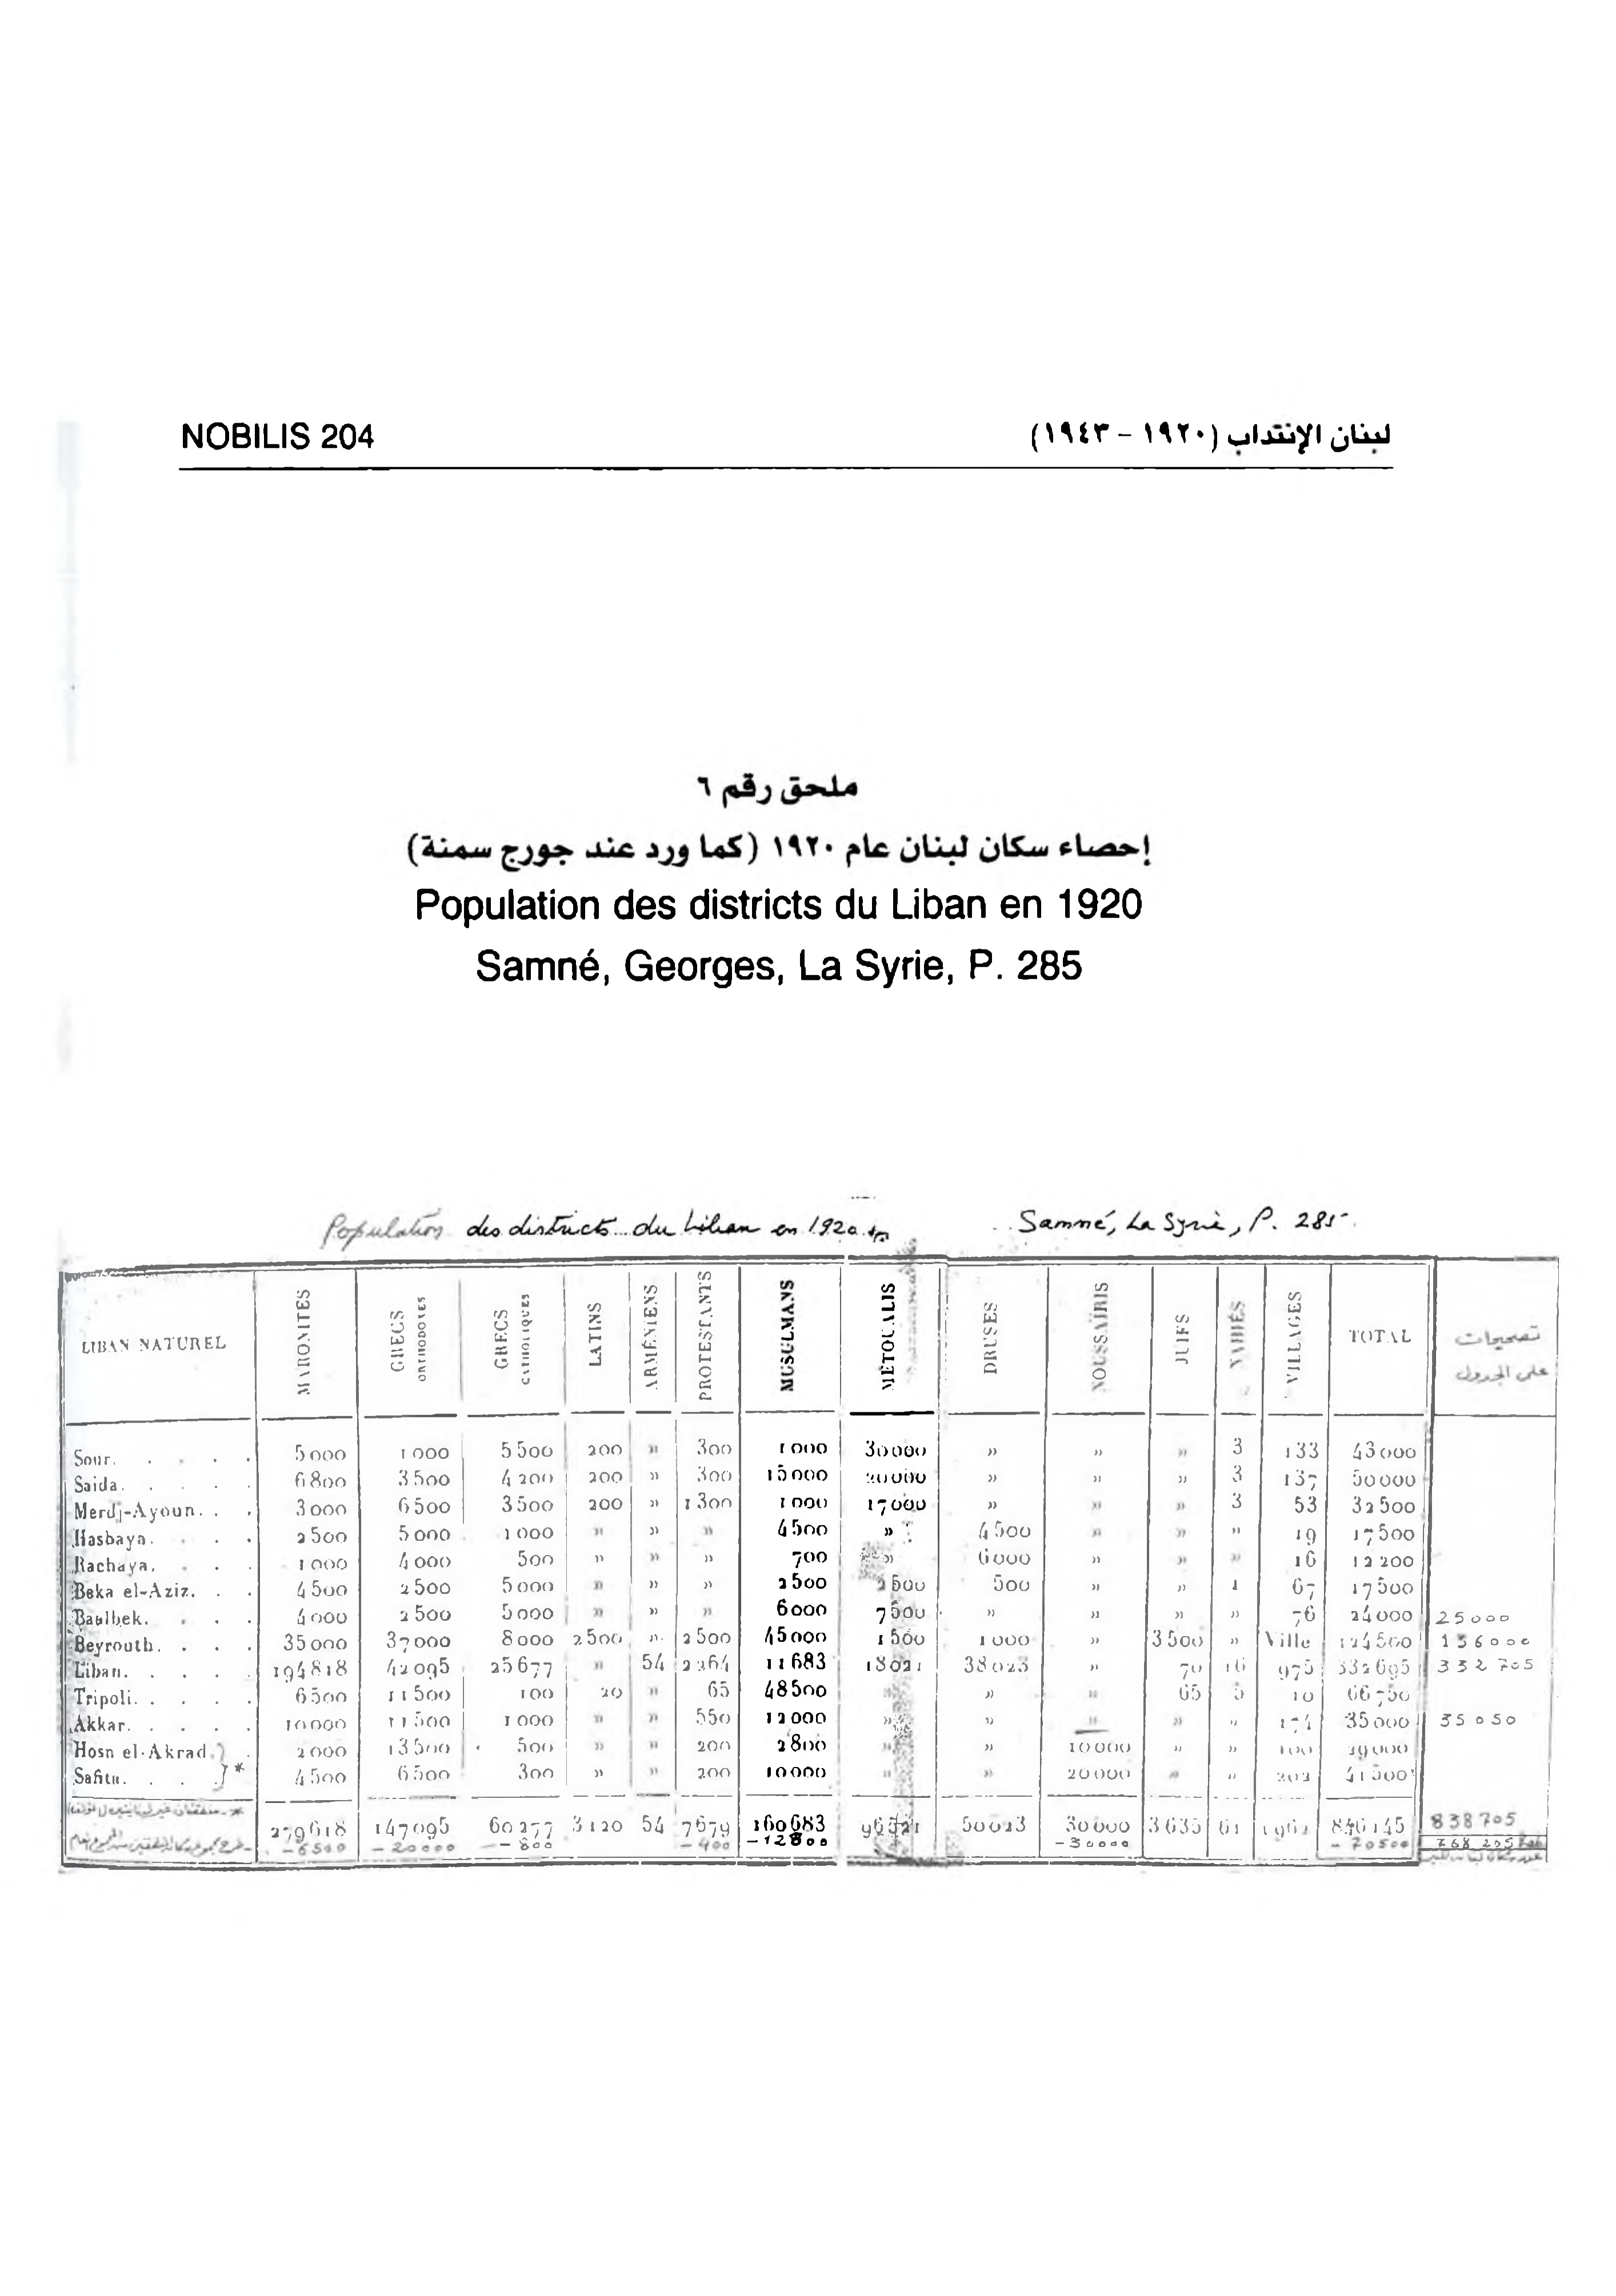 NOBILIS 204 لبنان الإنتداب (١٩٢٠ - ١٩٤٣)
ملحق رقم ٦
إحصاء سكان لبنان عام ١٩٢٠ (كما ورد عند جورج سمنة)
Population des districts du Liban en 1920
Samné, Georges, La Syrie, P. 285
Population des districts du Liban en 1920 Samné, La Syrie, P. 285
LIBAN NATUREL MARONITES GRECS ORTHODOXES GRECS CATHOLIQUES LATINS ARMÉNIENS PROTESTANTS MUSULMANS MÉTOUALIS DRUSES NOUSSAÏRIS JUIFS VILLAGES TOTAL تصحيحات على الجدول
Sour. . . . . 5 000 1 000 5 500 200 » 300 1 000 30 000 » » » 3 133 43 000
Saida. . . . . 6 800 3 500 4 200 200 » 300 15 000 20 000 » » » 3 137 50 000
Merdj-Ayoun. . . 3 000 6 500 3 500 200 » 1 300 1 000 17 000 » » » 3 53 32 500
Hasbaya. . . . 2 500 5 000 1 000 » » » 4 500 » 4 500 » » » 19 17 500
Rachaya. . . . 1 000 4 000 500 » » » 700 » 6 000 » » » 16 12 200
Beka el-Aziz. . . 4 500 2 500 5 000 » » » 2 500 2 500 500 » » 1 67 17 500
Baalbek. . . . 4 000 2 500 5 000 » » » 6 000 7 500 » » » » 76 24 000 25000
Beyrouth. . . . 35 000 37 000 8 000 2 500 » 2 500 45 000 1 500 1 000 » 3 500 » Ville 124 500 136000
Liban. . . . . 194 818 42 095 25 677 » 54 2 264 11 683 18 021 38 023 » 70 16 975 332 695 332 705
Tripoli. . . . . 6 500 11 500 100 20 » 65 48 500 » » » 65 5 10 66 750
Akkar. . . . . 10 000 11 500 1 000 » » 550 12 000 » » » » » 174 35 000 35050
Hosn el-Akrad. } . 2 000 13 500 500 » » 200 2 800 » » 10 000 » » 100 29 000
Safita. . . . } * 4 500 6 500 300 » » 200 10 000 » » 20 000 » » 202 41 500
279 618 147 095 60 277 3 120 54 7 679 160 683 96 521 50 023 30 000 3 635 61 1 962 838 705
- 6500 - 20000 - 800 - 400 - 12800 - 30000 - 70500 768 205